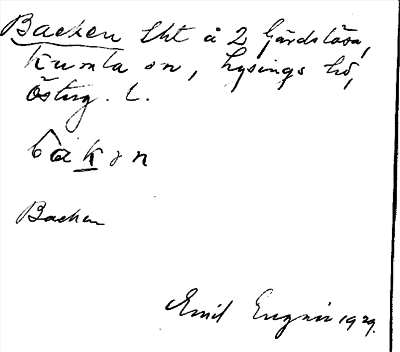 Backen lht å 2 Gärdslösa,
Kumla sn, Lysings hd,
Österg. L.
bàkən
Backen
Emil Engnér 1929.